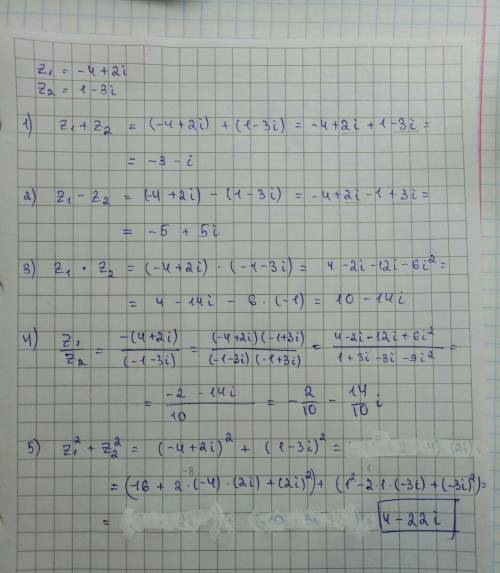 z₁ = -4+2i
z₂ = 1-3i
1) z₁+z₂ = (-4+2i) + (1-3i) = -4+2i+1-3i =
= -3 - i
2) z₁ - z₂ = (-4+2i) - (1-3i) = -4+2i-1+3i =
= -5 + 5i
3) z₁ · z₂ = (-4+2i) · (-1-3i) = 4-2i-12i-6i² =
= 4 - 14i - 6·(-1) = 10-14i
4) z₁/z₂ = -(4+2i)/(-1-3i) = (-4+2i)(-1+3i)/(-1-3i)(-1+3i) = 4-2i-12i+6i²/1+3i-3i-9i² =
= -2-14i/10 = -2/10 - 14/10 i
5) z₁² + z₂² = (-4+2i)² + (1-3i)² =
= (-16 + 2·(-4)·(2i)+(2i)²) + (1²-2·1·(-3i)+(-3i)²) =
= 4-22i